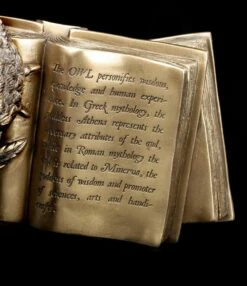 The OWL personifies wisdom,
knowledge and human experi-
In Greek mythology, the
Athena represents the
attributes of the owl,
in Roman mythology the
related to Minerva, the
of wisdom and promoter
of sciences, arts and handi-